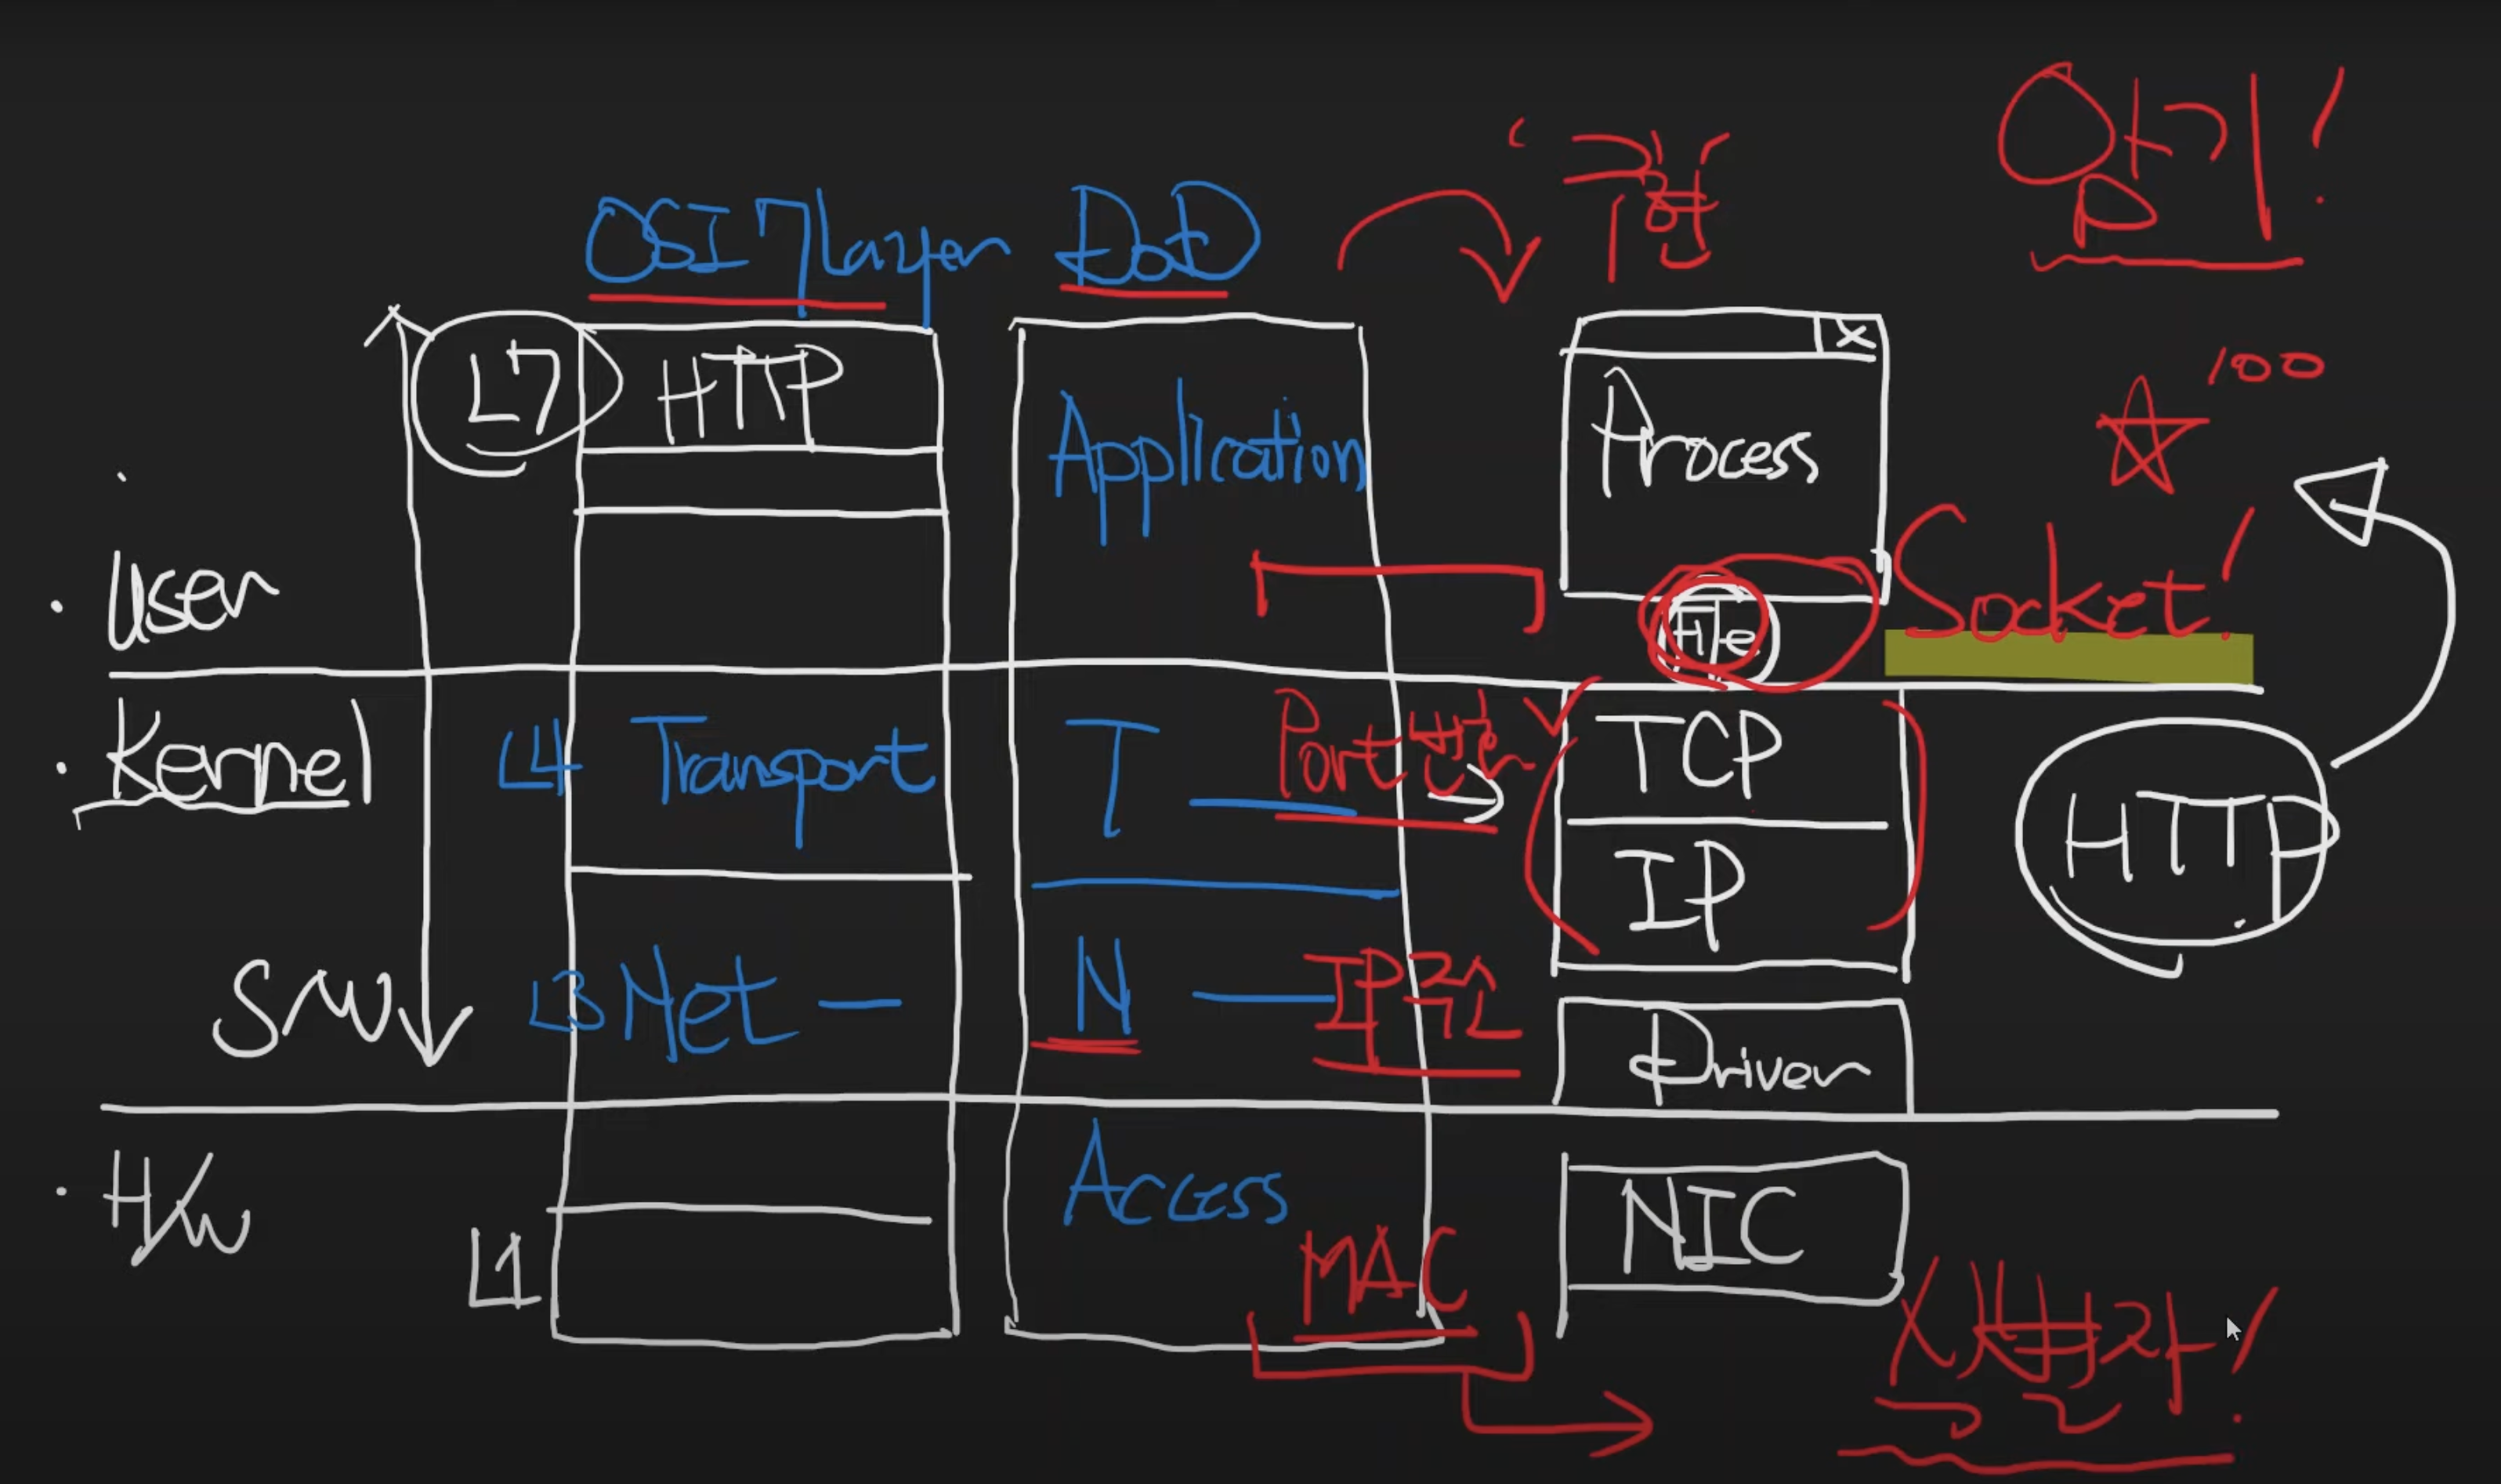 암기!
'구현'
OSI 7 layer
DoD
L7
HTTP
Application
Process
X
100
User
File
Socket!
Kernel
L4
Transport
T
Port 번호
TCP
HTTP
IP
S/W
L3
Net
N
IP주소
Driver
H/W
Access
NIC
L1
MAC
식별자!